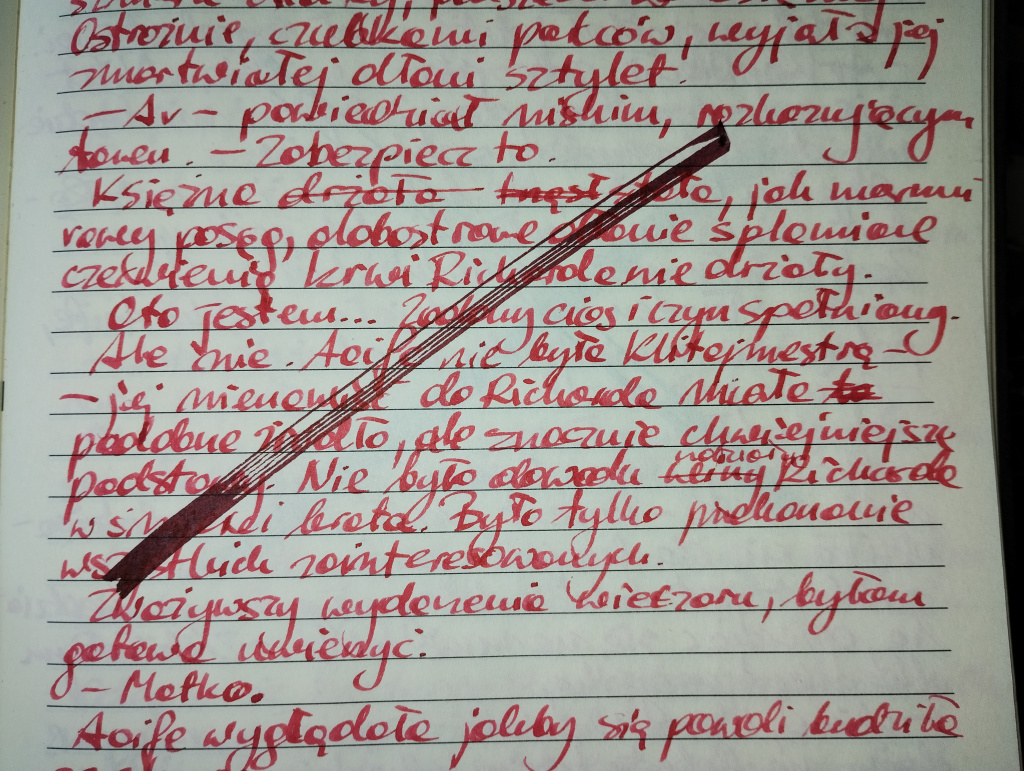 Ostrożnie, czubkami palców, wyjął z jej
zmartwiałej dłoni sztylet.
— Av — powiedział niskim, rozkazującym
tonem. — Zabezpiecz to.
Księżna drżała trzęsł stała, jak marmu
rowy posąg, alabastrowe dłonie splamione
czerwienią krwi Richarda nie drżały.
Oto jestem... Zadany cios i czyn spełniony.
Ale nie. Aoife nie była Klitajmestrą —
— jej nienawiść do Richarda miała to
podobne źródło, ale znacznie chwiejniejszą
podstawę. Nie było dowodu winy udziału Richarda
w śmierci brata. Było tylko przekonanie
wszystkich zainteresowanych.
Zważywszy wydarzenia wieczoru, byłam
gotowa uwierzyć.
— Matko.
Aoife wyglądała jakby się powoli budziła